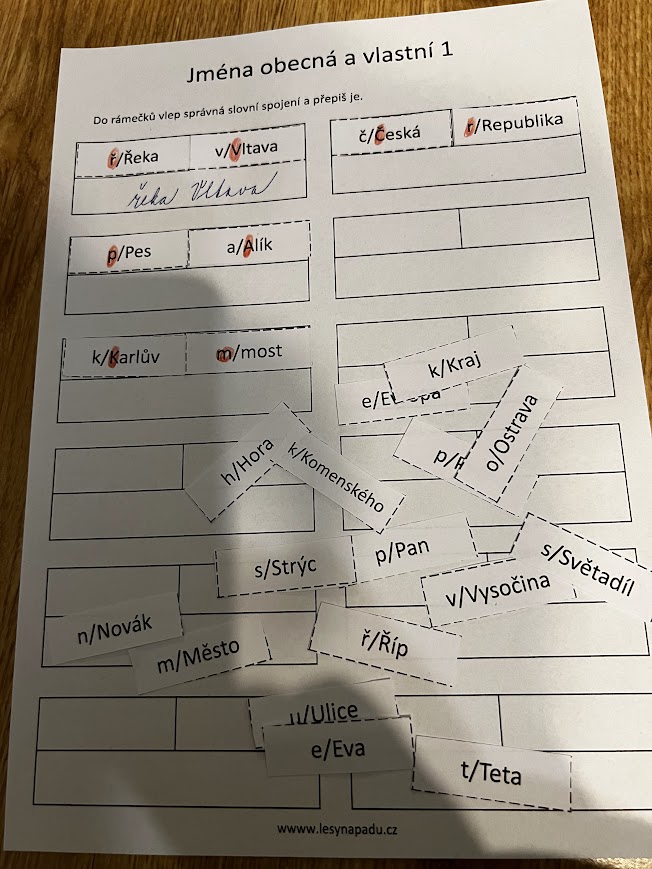 Jména obecná a vlastní 1
Do rámečků vlep správná slovní spojení a přepiš je.
ř/Řeka v/Vltava
řeka Vltava
č/Česká r/Republika
p/Pes a/Alík
k/Karlův m/most
k/Kraj
o/Ostrava
h/Hora
k/Komenského
s/Strýc
p/Pan
s/Světadíl
v/Vysočina
n/Novák
m/Město
ř/Říp
u/Ulice
e/Eva
t/Teta
wwww.lesynapadu.cz